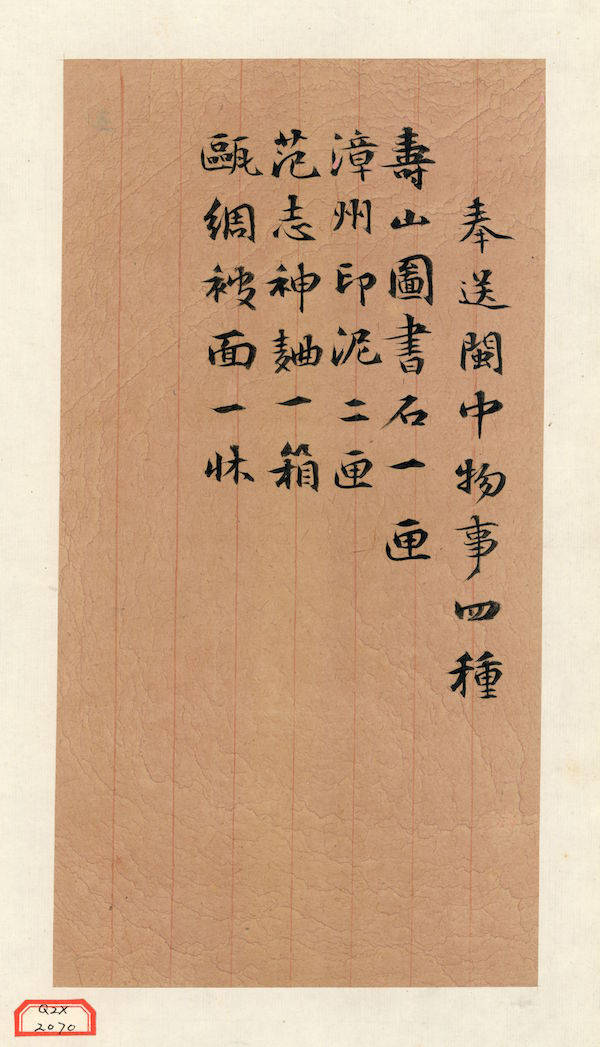 奉送閩中物事四種
壽山圖書石一匣
漳州印泥二匣
范志神麯一箱
甌綢被面一牀
Q2X
2070